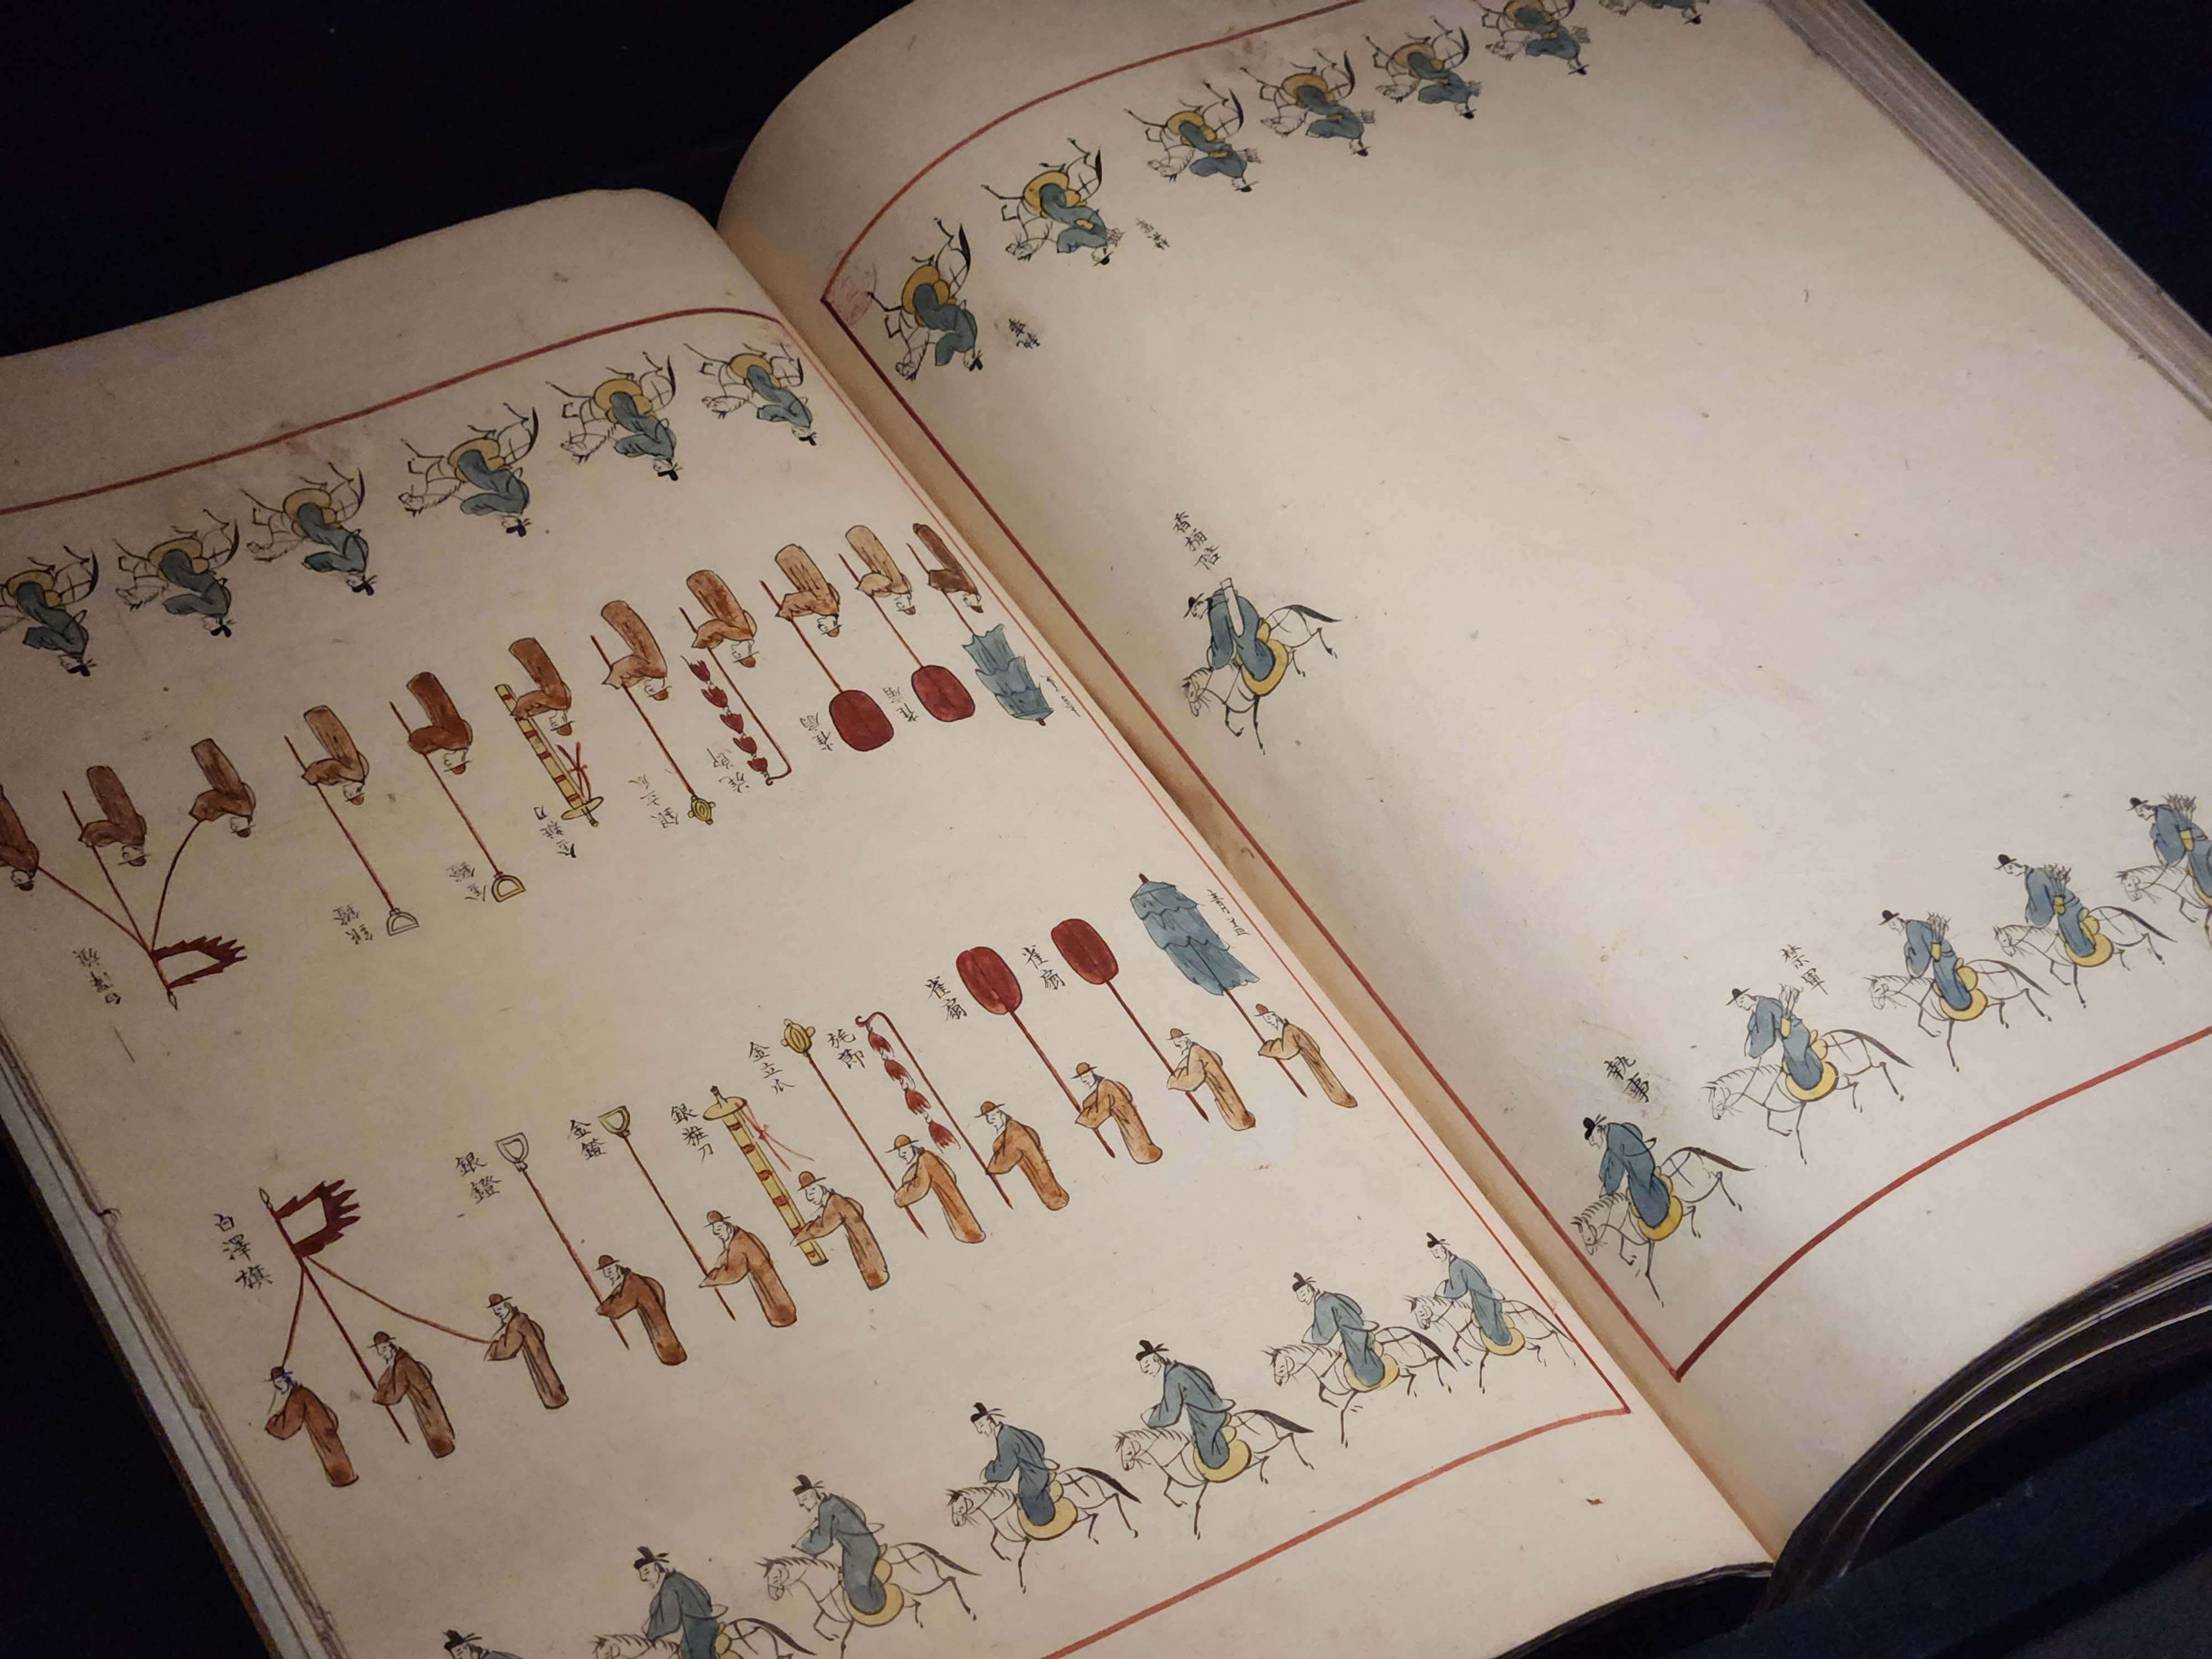 香桶陪
執事
禁軍
青盖
雀扇
雀扇
旄節
金立瓜
銀粧刀
金鐙
銀鐙
白澤旗
雀扇
雀扇
旄節
銀立瓜
金粧刀
金鐙
銀鐙
白澤旗
執事
禁軍